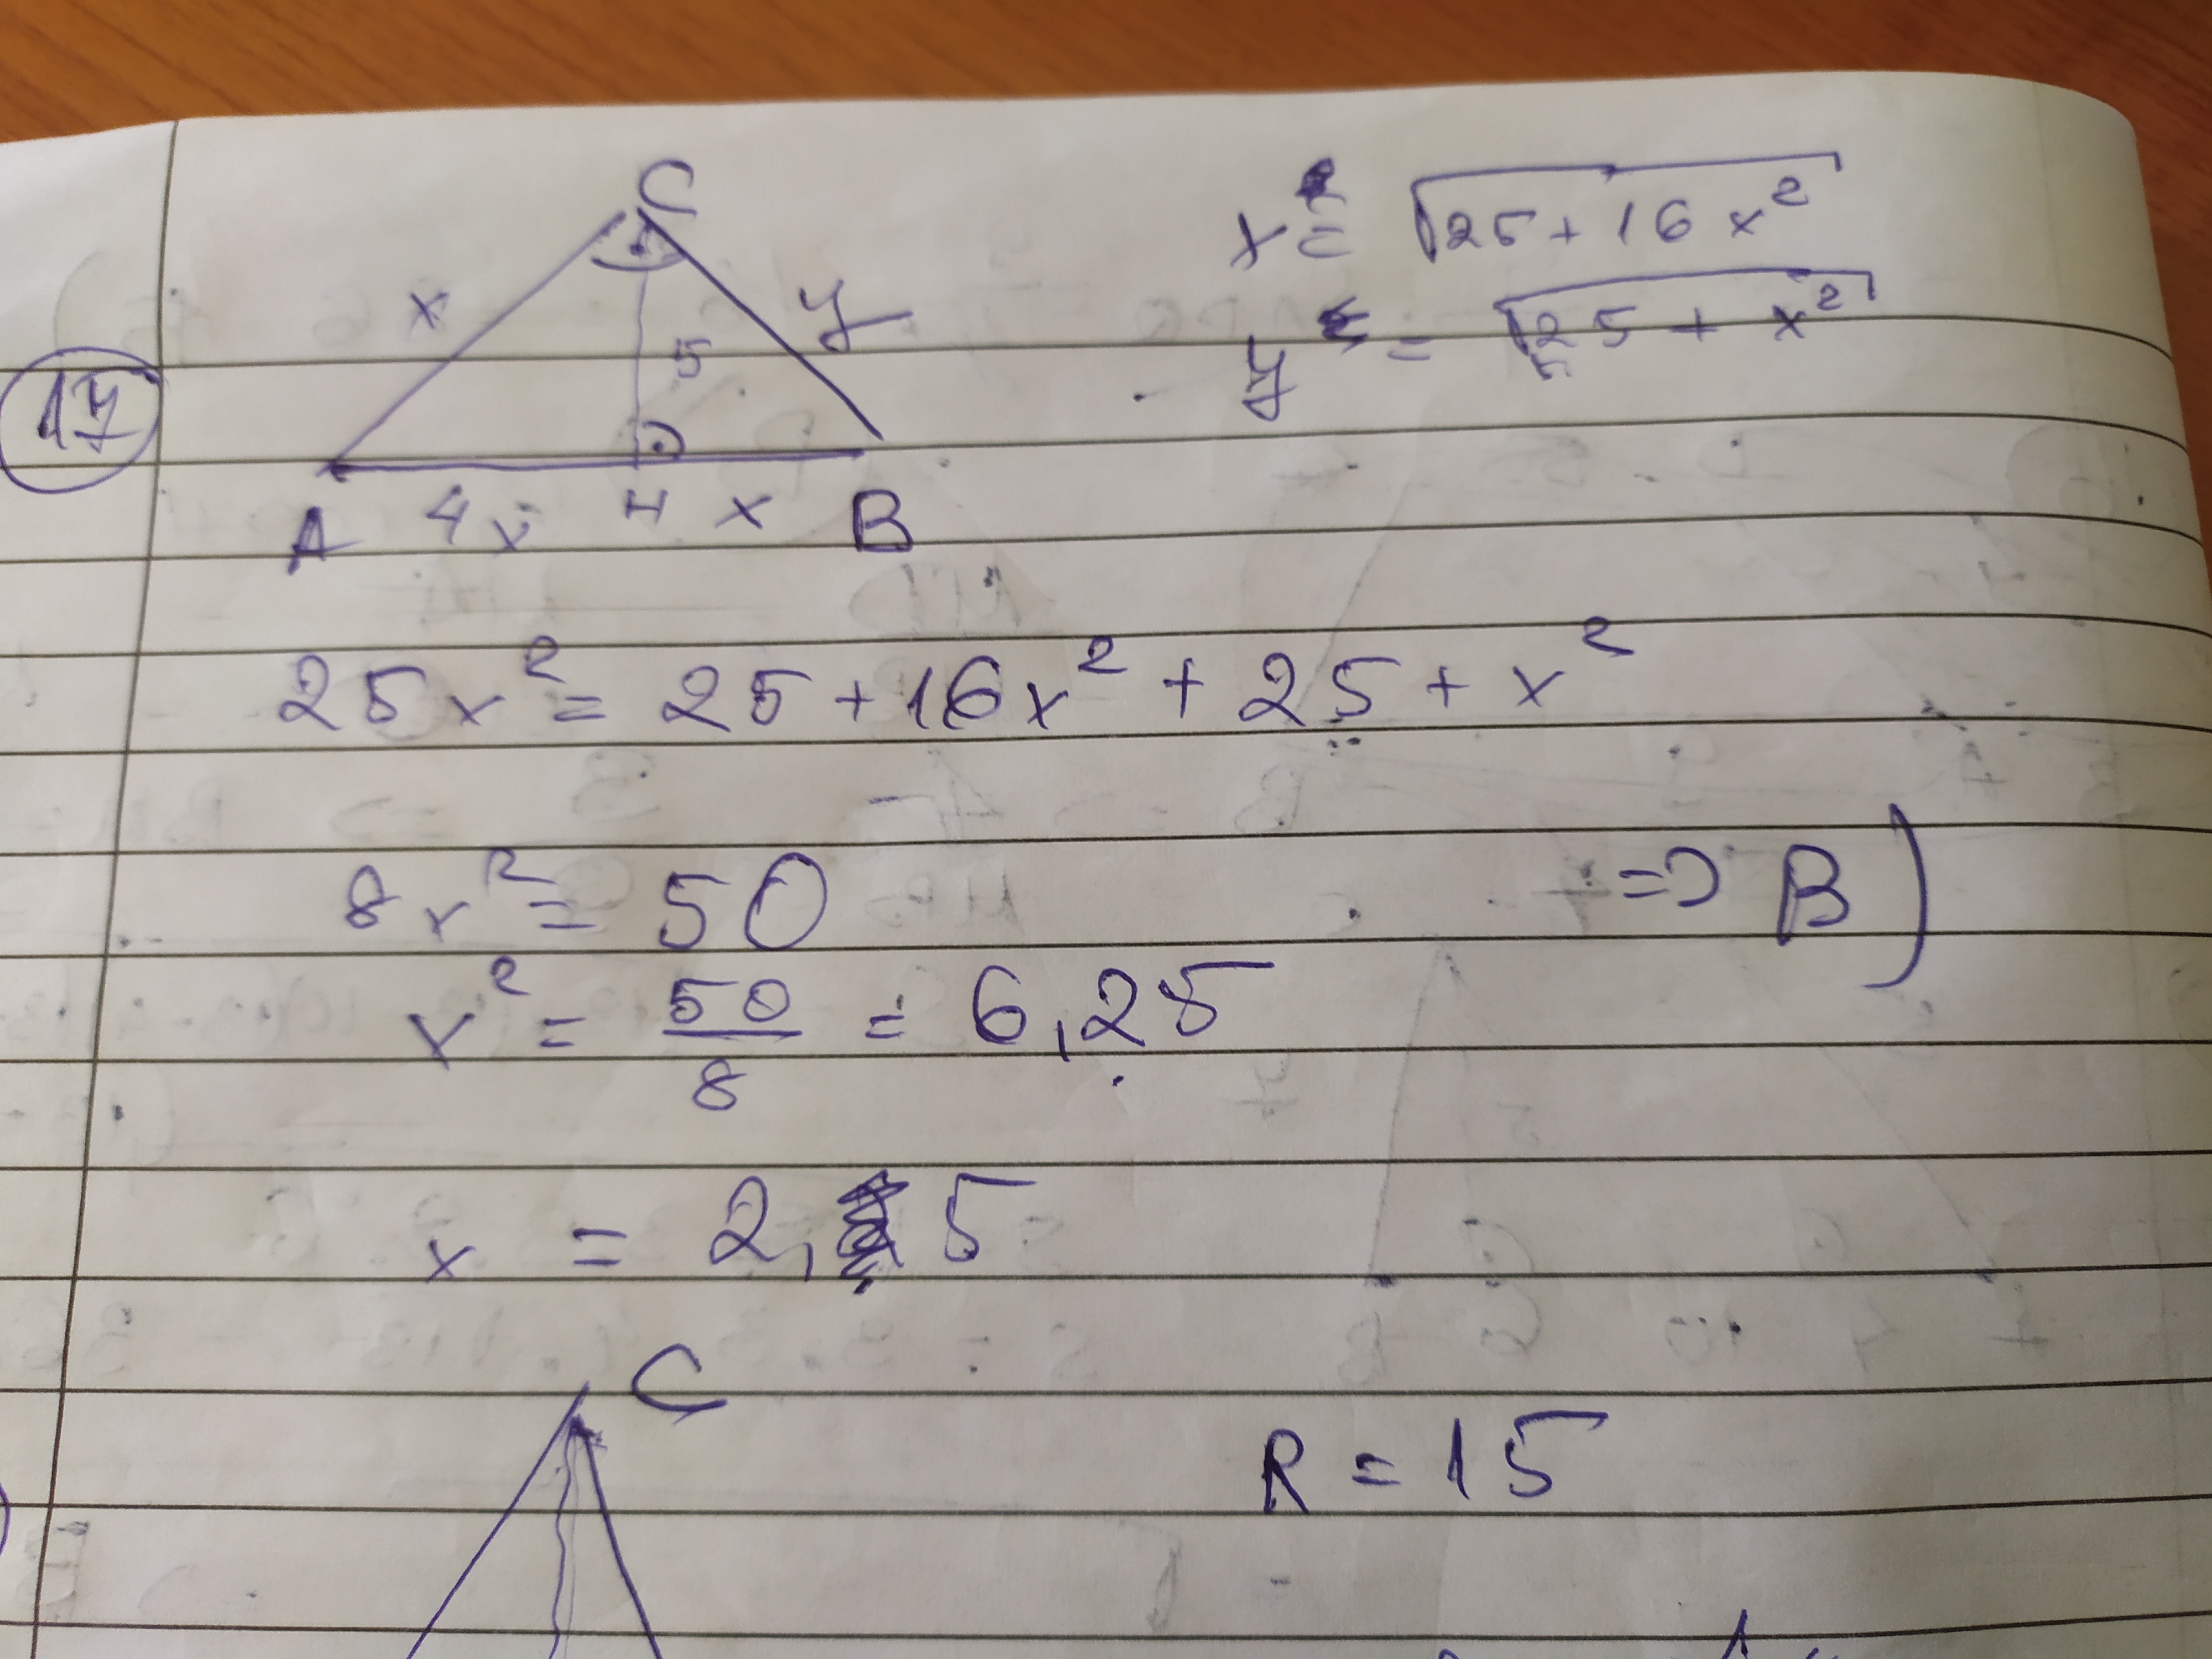 17
C
x
y
5
A 4x H x B
x = √25 + 16x²
y = √25 + x²
25x² = 25 + 16x² + 25 + x²
8x² = 50 => B)
x² = 50/8 = 6,25
x = 2,5
C
R = 15